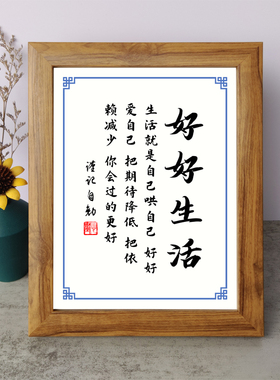 好好生活
生活就是自己哄自己 好好
爱自己 把期待降低 把依
赖减少 你会过的更好
谨记自勉